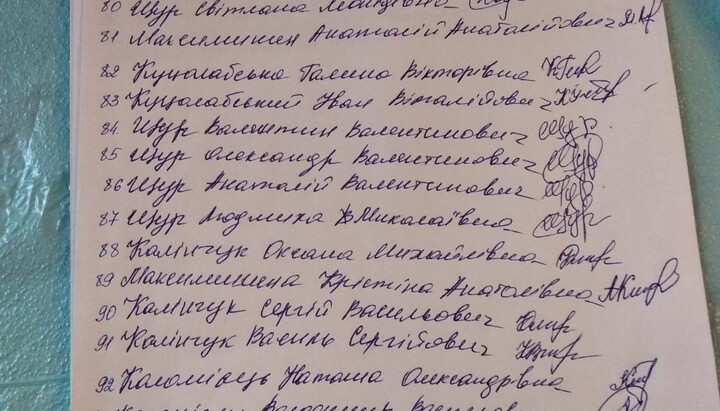 80 Щур Світлана
81 Максимишен Анатолій Анатолійович
82 Куцалабська Галина Вікторівна
83 Куцалабський Іван Віталійович
84 Щур Валентин Валентинович
85 Щур Олександр Валентинович
86 Щур Анатолій Валентинович
87 Щур Людмила Миколаївна
88 Калінчук Оксана Михайлівна
89 Максимишена Крістіна Анатолівна
90 Калінчук Сергій Васильович
91 Калінчук Василь Сергійович
92 Коломієць Наташа Олександрівна